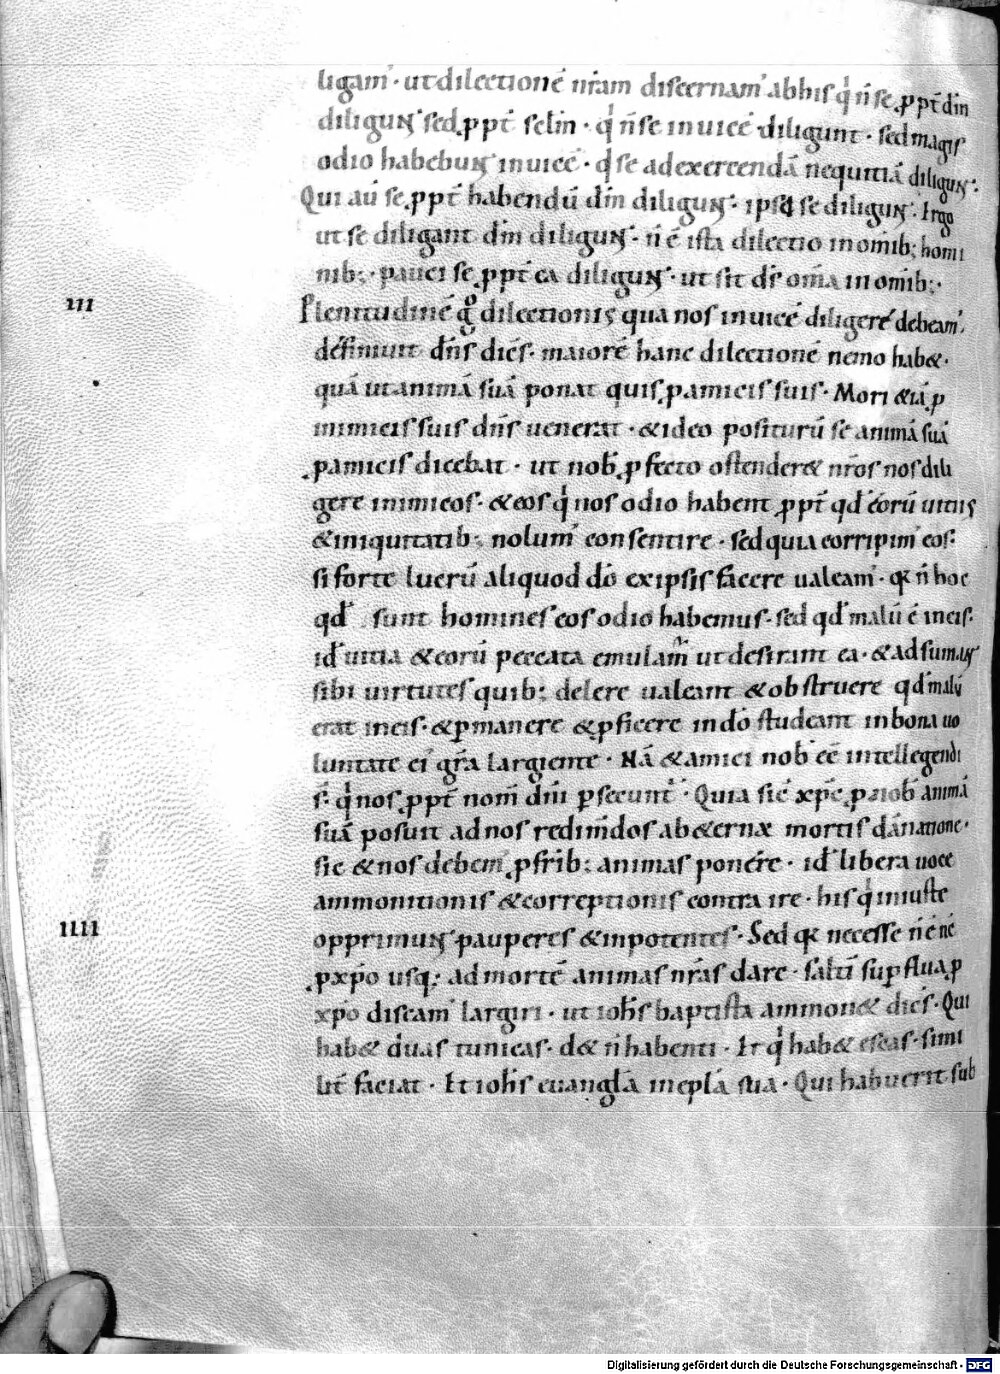 ligam᷑ · ut dilectionē nr̄am discernam᷑ ab his qͥ n̄ se ꝓpt̄ dm̄
diligunt᷑ sed ꝓpt̄ seclm̄ · qͥ n̄ se inuicē diligunt · sed magis
odio habebunt᷑ inuicē · qͥ se ad exercendā nequitiā diligunt᷑ ·
Qui aū se ꝓpt̄ habendū dm̄ diligunt᷑ · ipsi se diligunt᷑ · Ergo
ut se diligant dm̄ diligunt᷑ · n̄ ē ista dilectio in om̄ib; homi
nib; · pauci se ꝓpt̄ ea diligunt᷑ · ut sit ds̄ om̄a in om̄ib; ·
III Plenitudinē gͦ dilectionis qua nos inuicē diligere debeam᷑
definiuit dn̄s dicēs · maiorē hanc dilectionē nemo hab& ·
quā ut animā suā ponat quis ꝓ amicis suis · Mori &iā ꝓ
inimicis suis dn̄s uenerat · & ideo positurū se animā suā
ꝓ amicis dicebat · ut nob̄ ꝓfecto ostender& nr̄os nos dili
gere inimicos · & eos qͥ nos odio habent ꝓpt̄ qd̄ eorū uitiis
& iniquitatib; nolum᷑ consentire · sed quia corripim᷑ eos ·
si forte lucrū aliquod dō ex ipsis facere ualeam᷑ · & n̄ hoc
qd̄ sunt homines eos odio habemus · sed qd̄ malū ē in eis ·
id̄ uitia & eorū peccata emulam᷑ ut desinant ea · & adsumant᷑
sibi uirtutes quib; delere ualeant & obstruere qd̄ malū
erat in eis · & ꝑmanere & ꝓficere in dō studeant in bona uo
luntate ei᷑ gr̄a largiente · Nā & amici nob̄ eē intellegendi
s̄ · qͥ nos ꝓpt̄ nom̄ dn̄i ꝑsecunt᷑ · Quia sic xp̄c ꝓ nob̄ animā
suā posuit ad nos redim̄dos ab &ernæ mortis dānatione ·
sic & nos debem᷑ ꝓ fr̄ib; animas ponere · id̄ libera uoce
ammonitionis & correptionis contra ire · his qͥ iniuste
IIII opprimunt᷑ pauperes & inpotentes · Sed & necesse n̄ ē nē
ꝓ xp̄o usq; ad mortē animas nr̄as dare · saltī suꝑflua ꝓ
xp̄o discam᷑ largiri · ut ioh̄s baptista ammon& dicēs · Qui
hab& duas tunicas · d& n̄ habenti · Et qͥ hab& escas · simi
lit̄ faciat · Et ioh̄s euangl̄a in epl̄a sua · Qui habuerit sub
Digitalisierung gefördert durch die Deutsche Forschungsgemeinschaft - DFG